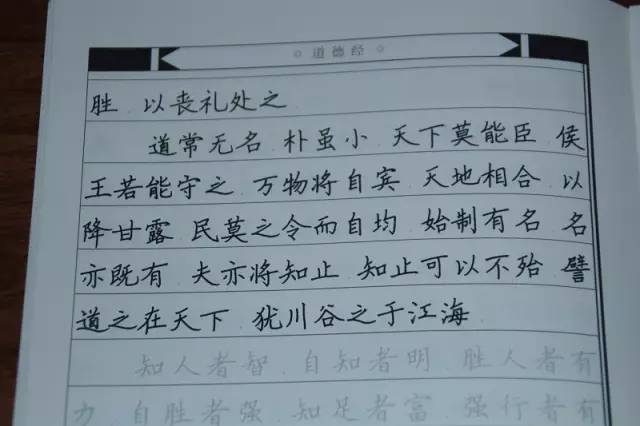 道德经
胜 以丧礼处之
道常无名 朴虽小 天下莫能臣 侯
王若能守之 万物将自宾 天地相合 以
降甘露 民莫之令而自均 始制有名 名
亦既有 夫亦将知止 知止可以不殆 譬
道之在天下 犹川谷之于江海
知人者智 自知者明 胜人者有
力 自胜者强 知足者富 强行者有